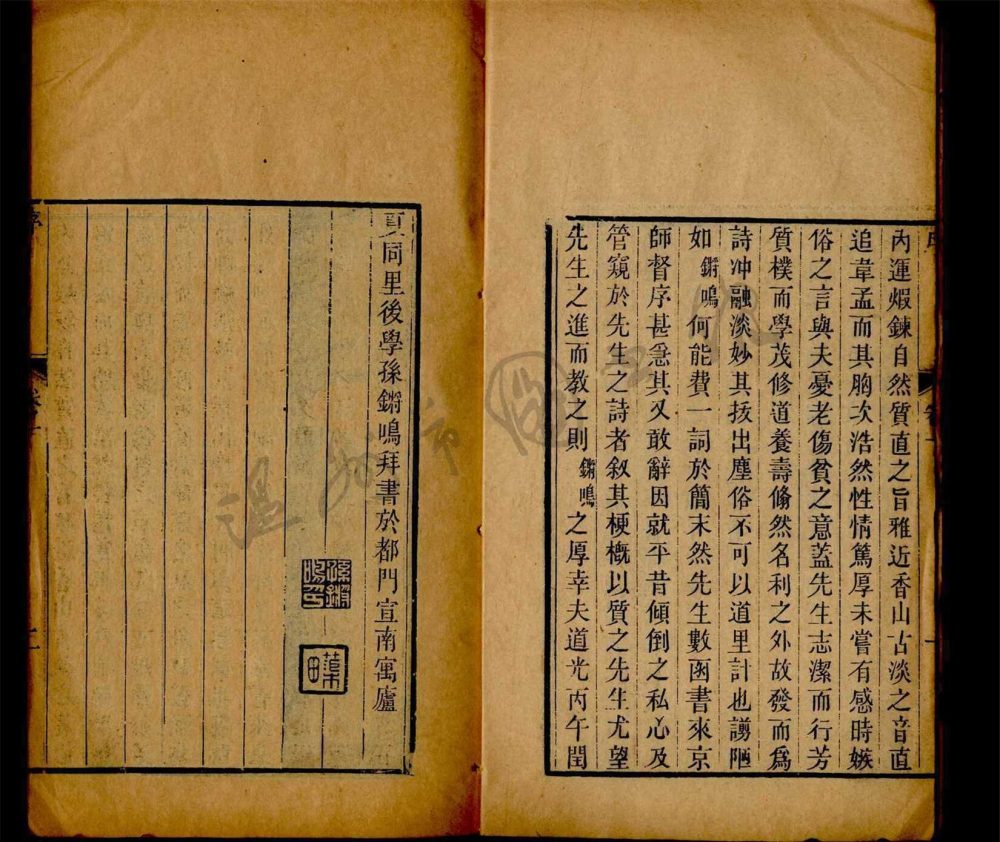 內運煆鍊自然質直之旨雅近香山古淡之音直
追韋孟而其胸次浩然性情篤厚未嘗有感時嫉
俗之言與夫憂老傷貧之意蓋先生志潔而行芳
質樸而學茂修道養壽翛然名利之外故發而為
詩冲融淡妙其㧞出塵俗不可以道里計也謭陋
如鏘鳴何能費一詞於簡末然先生數函書來京
師督序甚急其又敢辭因就平昔傾倒之私心及
管窺於先生之詩者叙其梗概以質之先生尤望
先生之進而教之則鏘鳴之厚幸夫道光丙午閏
夏同里後學孫鏘鳴拜書於都門宣南寓廬
孫鏘鳴印
蕖田
序
溫州市圖